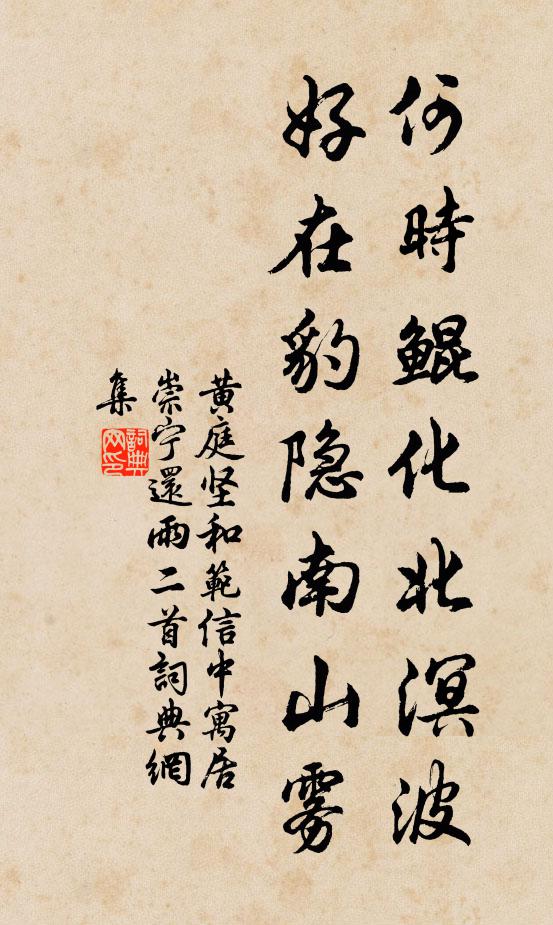 何時鲲化北溟波
好在豹隐南山雾
黄庭坚和範信中寓居
崇宁還雨二首詞典網
集
詞典
网印